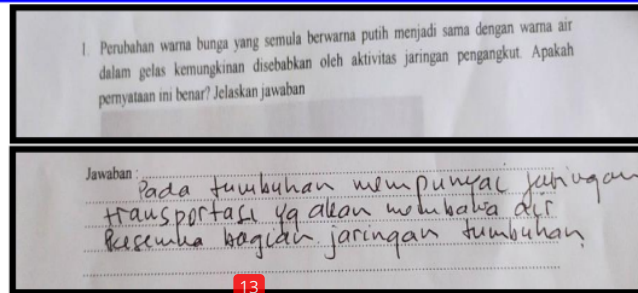 1. Perubahan warna bunga yang semula berwarna putih menjadi sama dengan warna air
dalam gelas kemungkinan disebabkan oleh aktivitas jaringan pengangkut. Apakah
pernyataan ini benar? Jelaskan jawaban
Jawaban :
Pada tumbuhan mempunyai jaringan
transportasi yg akan membawa air
kesemua bagian jaringan tumbuhan
13